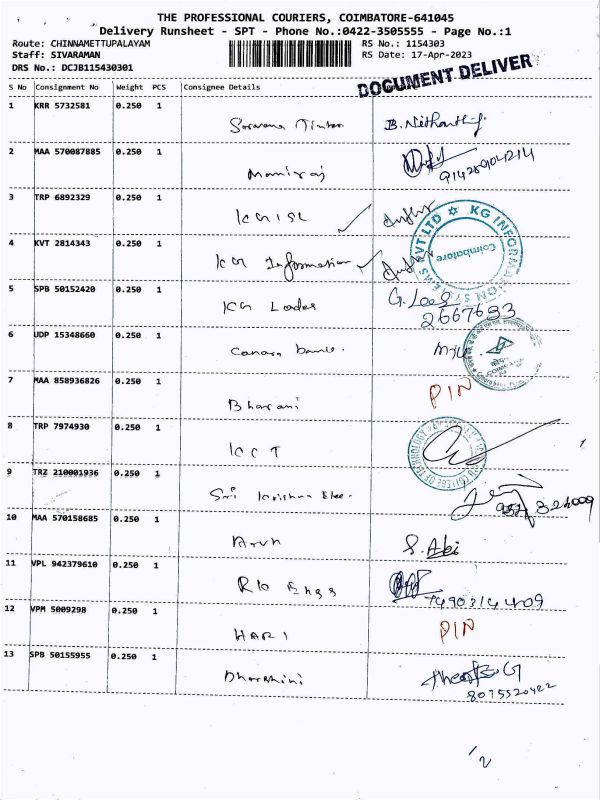 THE PROFESSIONAL COURIERS, COIMBATORE-641045
Delivery Runsheet - SPT - Phone No.:0422-3505555 - Page No.:1
Route: CHINNAMETTUPALAYAM RS No.: 1154303
Staff: SIVARAMAN RS Date: 17-Apr-2023
DRS No.: DCJB115430301
DOCUMENT DELIVER
S No Consignment No Weight PCS Consignee Details
1 KRR 5732581 0.250 1
2 MAA 570087885 0.250 1 Maniraj
3 TRP 6892329 0.250 1 KGISL
4 KVT 2814343 0.250 1 KG Information
KG INFORMATION SYSTEMS PVT LTD
Coimbatore
5 SPB 50152420 0.250 1 KG
2667693
6 UDP 15348660 0.250 1 Canara bank.
7 MAA 858936826 0.250 1 Bharani PIN
8 TRP 7974930 0.250 1 KCT
COLLEGE OF TECHNOLOGY
9 TRZ 210001936 0.250 1 Sri Krishna
10 MAA 570158685 0.250 1 Arun S. Abi
11 VPL 942379610 0.250 1 Engg
12 VPM 5009298 0.250 1 HARI PIN
13 SPB 50155955 0.250 1 Dharshini